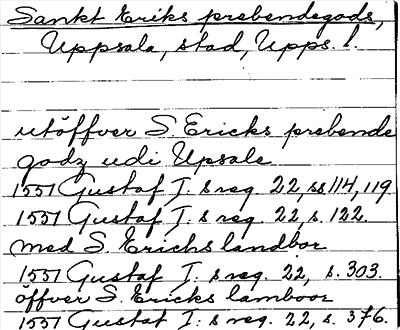 Sankt Eriks prebendegods,
Uppsala, stad, Upps. l.
utöffver S. Ericks prebende
godz udi Upsale
1551 Gustaf I:s reg. 22, ss. 114, 119
1551 Gustaf I:s reg. 22, s. 122.
med S. Erichs landbor
1551 Gustaf I:s reg. 22, s. 303.
öffver S. Ericks lamboor
1551 Gustaf I:s reg. 22, s. 376.